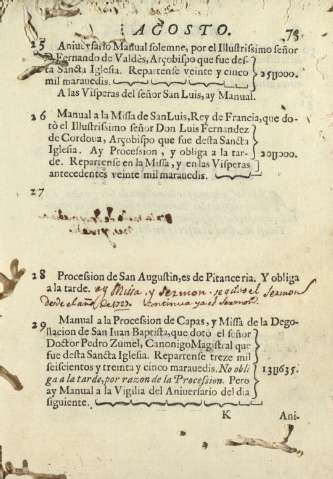 AGOSTO. 75
25 Aniversario Manual solemne, por el Illustrissimo señor
D. Fernando de Valdès, Arçobispo que fue des-
ta Sancta Iglesia. Repartense veinte y cinco
mil marauedis. 25U000.
A las Visperas del señor San Luis, ay Manual.
26 Manual a la Missa de San Luis, Rey de Francia, que do-
tò el Illustrissimo señor Don Luis Fernandez
de Cordoua, Arçobispo que fue desta Sancta
Iglesia. Ay Procession, y obliga a la tar-
de. Repartense en la Missa, y en las Visperas
antecedentes veinte mil marauedis. 20U000.
27
28 Procession de San Augustin, es de Pitanceria. Y obliga
a la tarde. ay Missa y Sermon. Sermon
desde el año de
29 Manual a la Procession de Capas, y Missa de la Dego-
llacion de San Iuan Baptista, que dotò el señor
Doctor Pedro Zumel, Canonigo Magistral que
fue desta Sancta Iglesia. Repartense treze mil
seiscientos y treinta y cinco marauedis. No obli-
ga a la tarde, por razon de la Procession. Pero
ay Manual a la Vigilia del Aniversario del dia
siguiente. 13U635.
K Ani-